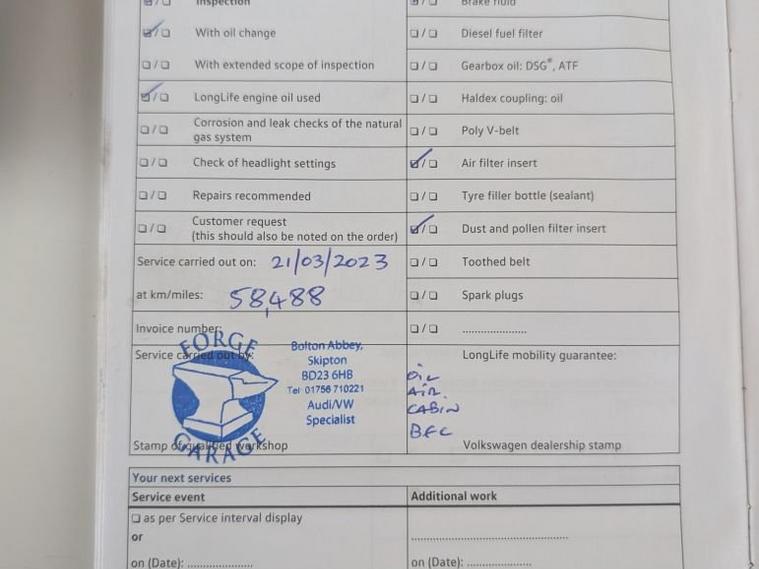 Inspection
Brake fluid
With oil change
Diesel fuel filter
With extended scope of inspection
Gearbox oil: DSG®, ATF
LongLife engine oil used
Haldex coupling: oil
Corrosion and leak checks of the natural
gas system
Poly V-belt
Check of headlight settings
Air filter insert
Repairs recommended
Tyre filler bottle (sealant)
Customer request
(this should also be noted on the order)
Dust and pollen filter insert
Service carried out on: 21/03/2023
Toothed belt
at km/miles: 58,488
Spark plugs
Invoice number:
Service carried out by:
FORGE
GARAGE
Bolton Abbey,
Skipton
BD23 6HB
Tel 01756 710221
Audi/VW
Specialist
Stamp of qualified workshop
LongLife mobility guarantee:
OIL
AIR.
CABIN
BFC
Volkswagen dealership stamp
Your next services
Service event
Additional work
as per Service interval display
or
on (Date): ....................
on (Date): ....................